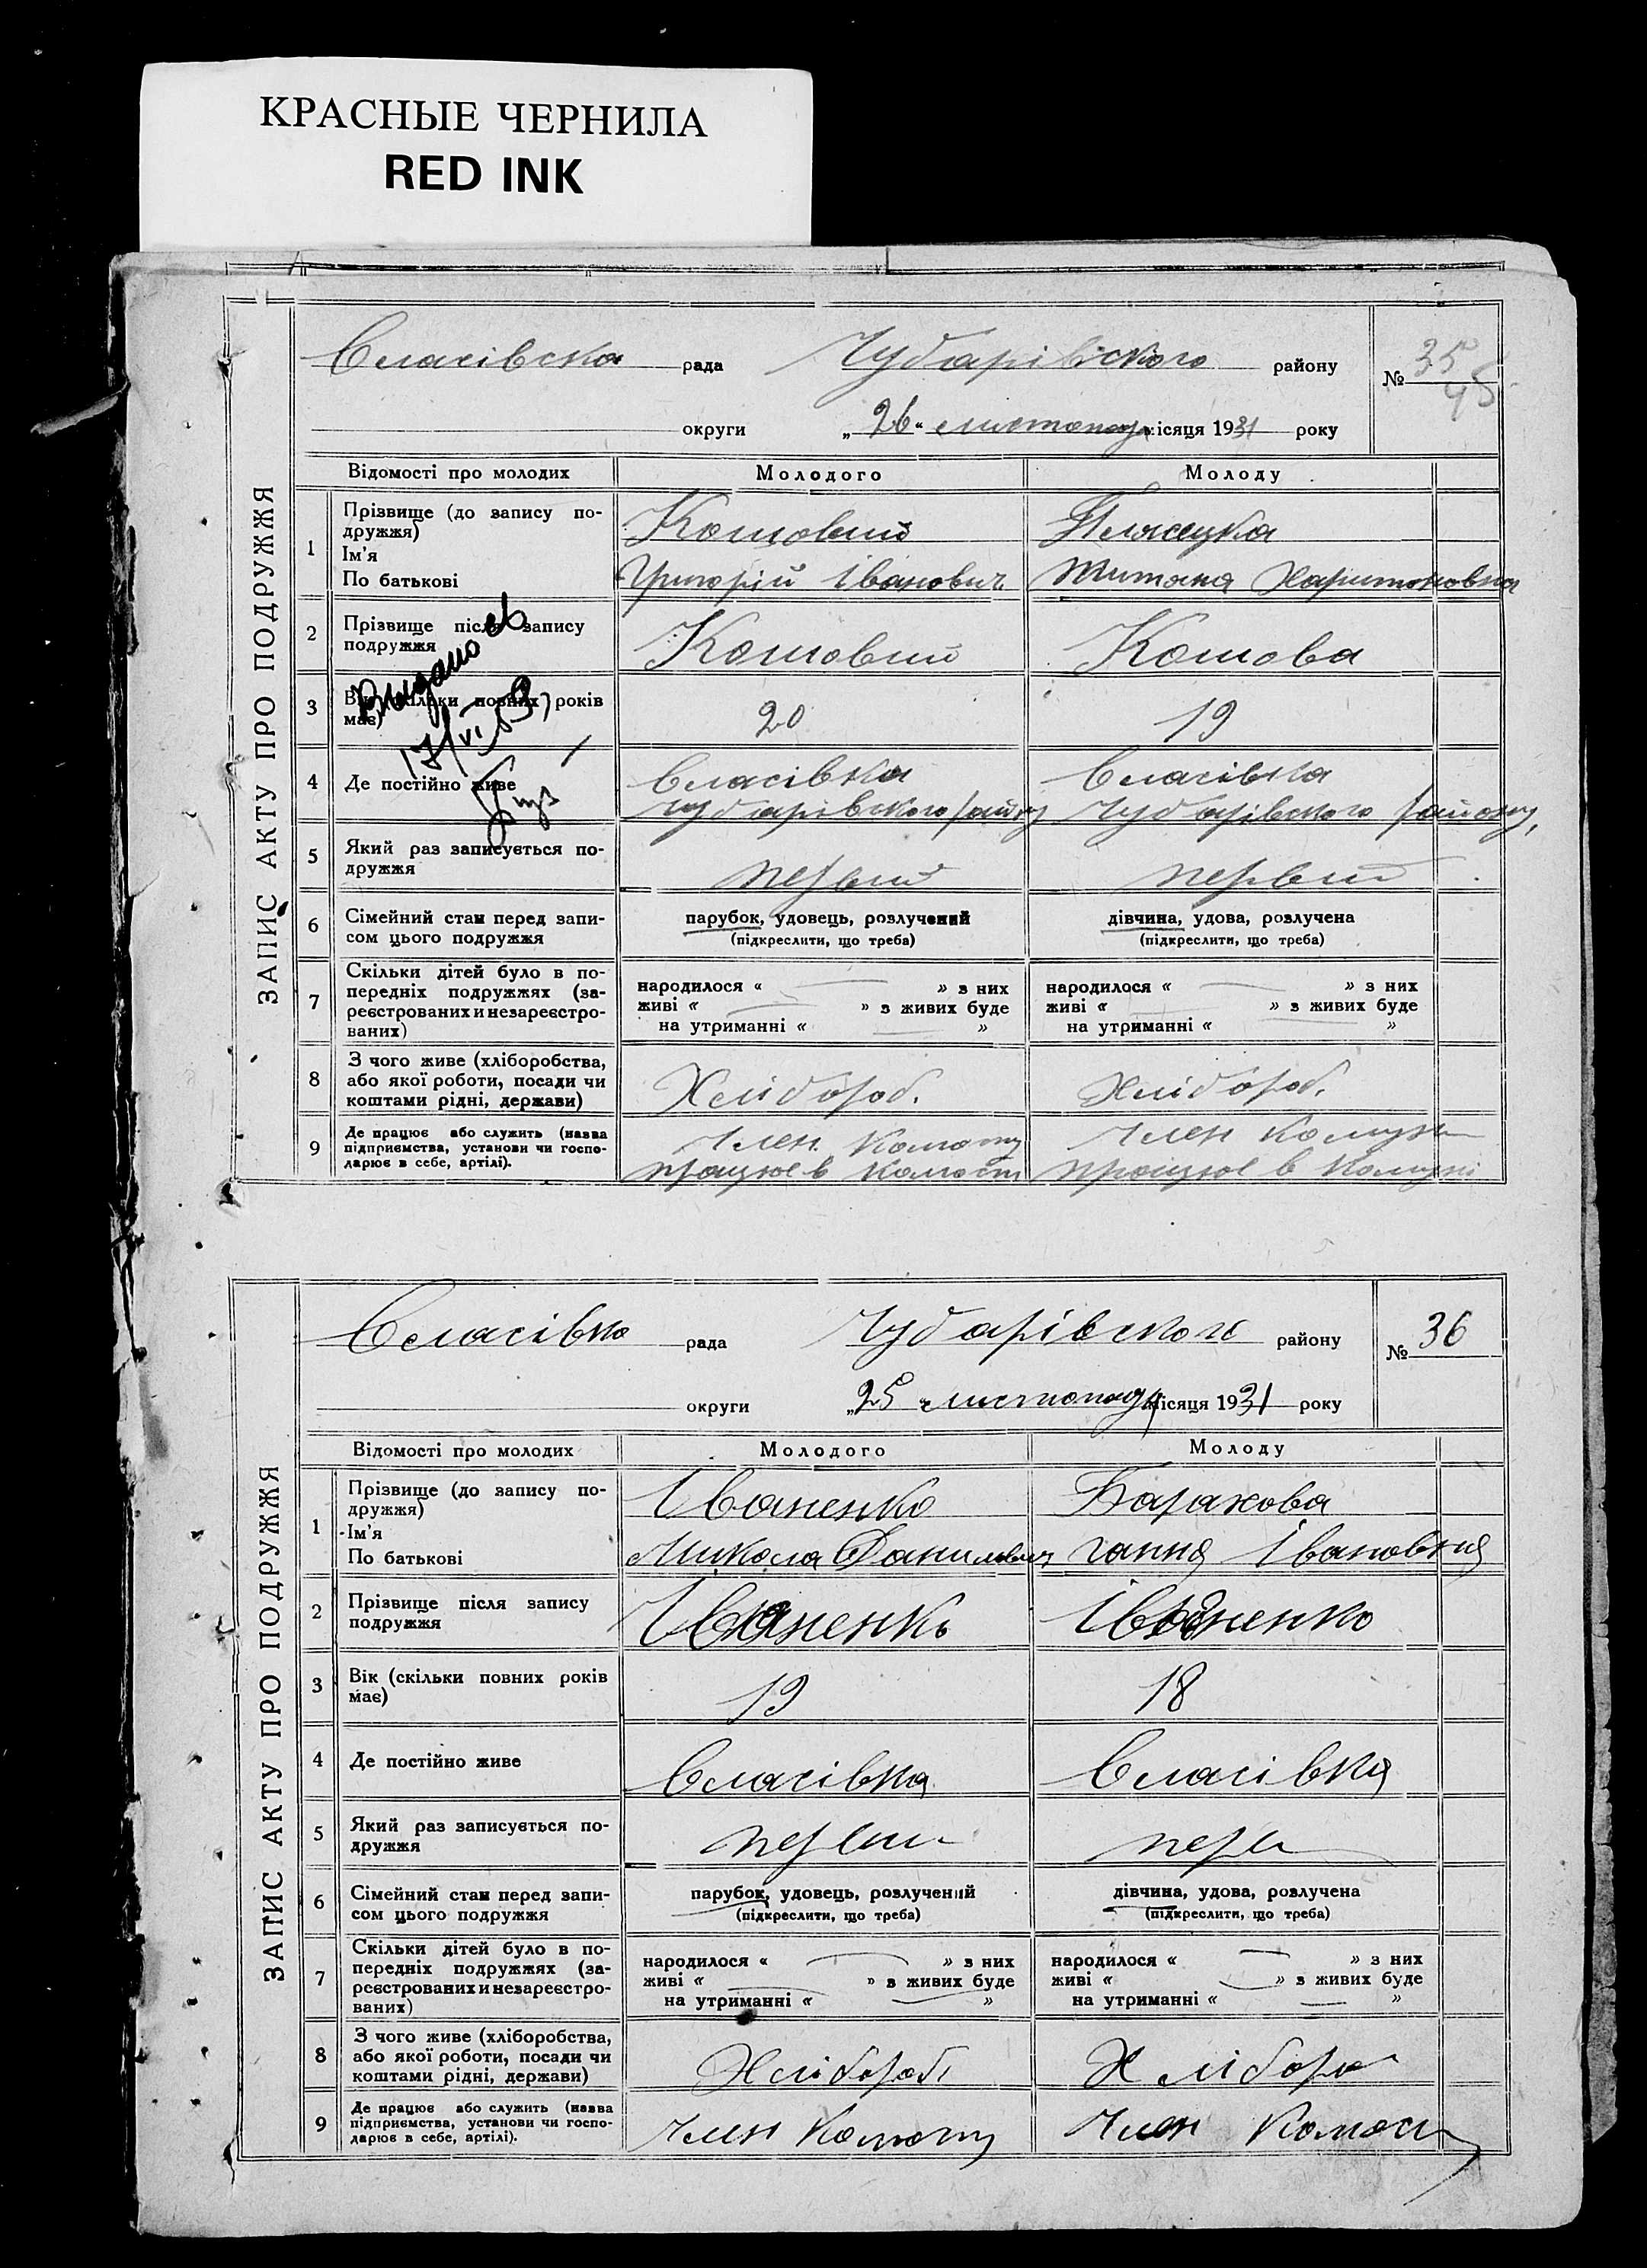 КРАСНЫЕ ЧЕРНИЛА
RED INK
ЗАПИС АКТУ ПРО ПОДРУЖЖЯ
Власівска рада Чубарівского району № 35
45
округи „26“ листопада місяця 1931 року
Відомості про молодих Молодого Молоду
1 Прізвище (до запису по-
дружжя)
Ім'я
По батькові
Котовий
Григорій Іванович
Титяна Харитоновна
2 Прізвище після запису
подружжя
Котовий Котова
3 Вік (скільки повних років
має)
20 19
Видано
17/VI
4 Де постійно живе
Власівка Власівка
Чубарівского району Чубарівского району,
5 Який раз записується по-
дружжя
первий первий
6 Сімейний стан перед запи-
сом цього подружжя
парубок, удовець, розлучений дівчина, удова, розлучена
(підкреслити, що треба) (підкреслити, що треба)
7 Скільки дітей було в по-
передніх подружжях (за-
реєстрованих и незареєстро-
ваних)
народилося « » з них народилося « » з них
живі « » з живих буде живі « » з живих буде
на утриманні « » на утриманні « »
8 З чого живе (хліборобства,
або якої роботи, посади чи
коштами рідні, держави)
Хлібороб. Хлібороб.
9 Де працює або служить (назва
підприємства, установи чи госпо-
дарює в себе, артілі).
Член Член
працює в працює в
ЗАПИС АКТУ ПРО ПОДРУЖЖЯ
Власівка рада Чубарівского району № 36
округи „25“ листопада місяця 1931 року
Відомості про молодих Молодого Молоду
1 Прізвище (до запису по-
дружжя)
Ім'я
По батькові
Іваненко
Микола Данилович Ганна Івановна
2 Прізвище після запису
подружжя
Іваненко Іваненко
3 Вік (скільки повних років
має)
19 18
4 Де постійно живе
Власівка Власівка
5 Який раз записується по-
дружжя
6 Сімейний стан перед запи-
сом цього подружжя
парубок, удовець, розлучений дівчина, удова, розлучена
(підкреслити, що треба) (підкреслити, що треба)
7 Скільки дітей було в по-
передніх подружжях (за-
реєстрованих и незареєстро-
ваних)
народилося « » з них народилося « » з них
живі « » з живих буде живі « » з живих буде
на утриманні « » на утриманні « »
8 З чого живе (хліборобства,
або якої роботи, посади чи
коштами рідні, держави)
Хлібороб Хлібороб
9 Де працює або служить (назва
підприємства, установи чи госпо-
дарює в себе, артілі).
Член Член